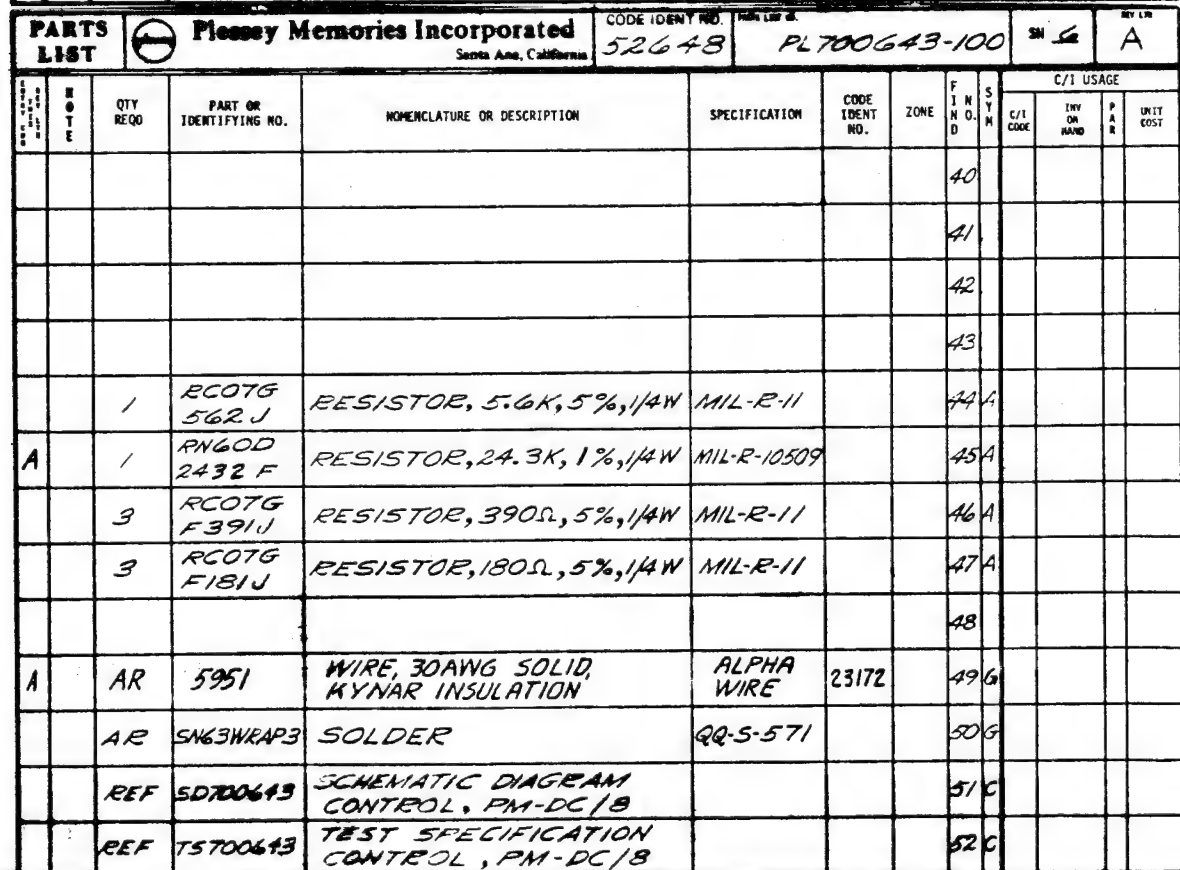 PARTS LIST Plessey Memories Incorporated CODE IDENT NO. PL700643-100 SH REV LTR
Santa Ana, California 52648 A
C/I USAGE
NOTE QTY REQD PART OR IDENTIFYING NO. NOMENCLATURE OR DESCRIPTION SPECIFICATION CODE IDENT NO. ZONE FIND NO. SYM C/I CODE INV ON HAND PAR UNIT COST
40
41
42
43
1 RC07G 562J RESISTOR, 5.6K, 5%, 1/4W MIL-R-11 44 A
A 1 RN60D 2432F RESISTOR, 24.3K, 1%, 1/4W MIL-R-10509 45 A
3 RC07G F391J RESISTOR, 390Ω, 5%, 1/4W MIL-R-11 46 A
3 RC07G F181J RESISTOR, 180Ω, 5%, 1/4W MIL-R-11 47 A
48
A AR 5951 WIRE, 30AWG SOLID, KYNAR INSULATION ALPHA WIRE 23172 49 G
AR SN63WRAP3 SOLDER QQ-S-571 50 G
REF SD700643 SCHEMATIC DIAGRAM CONTROL, PM-DC/8 51 C
REF TS700643 TEST SPECIFICATION CONTROL, PM-DC/8 52 C